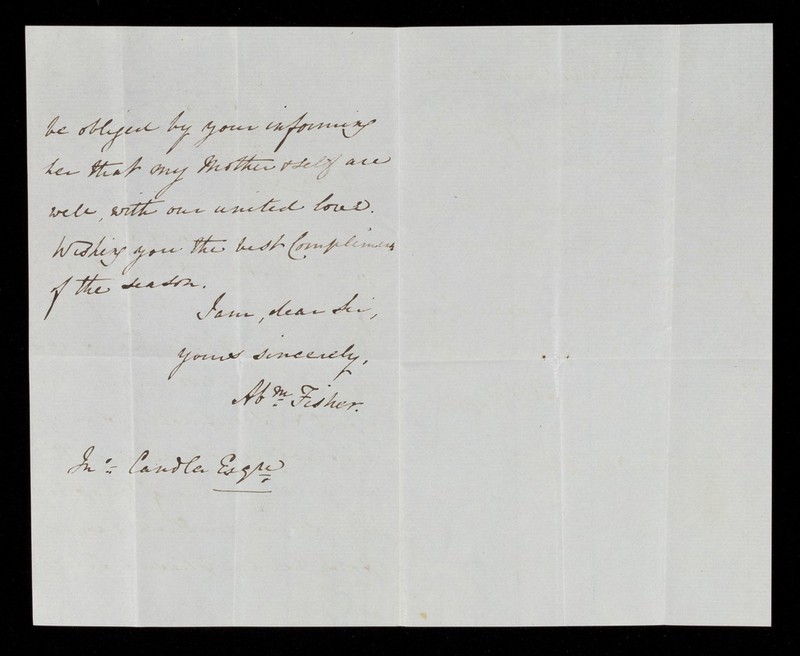 be obliged by your informing
her that my Mother & self are
well, with our united love.
Wishing you the best Compliments
of the season.
I am, dear Sir,
yours sincerely,
Abm Fisher.
Jno Candler Esqre